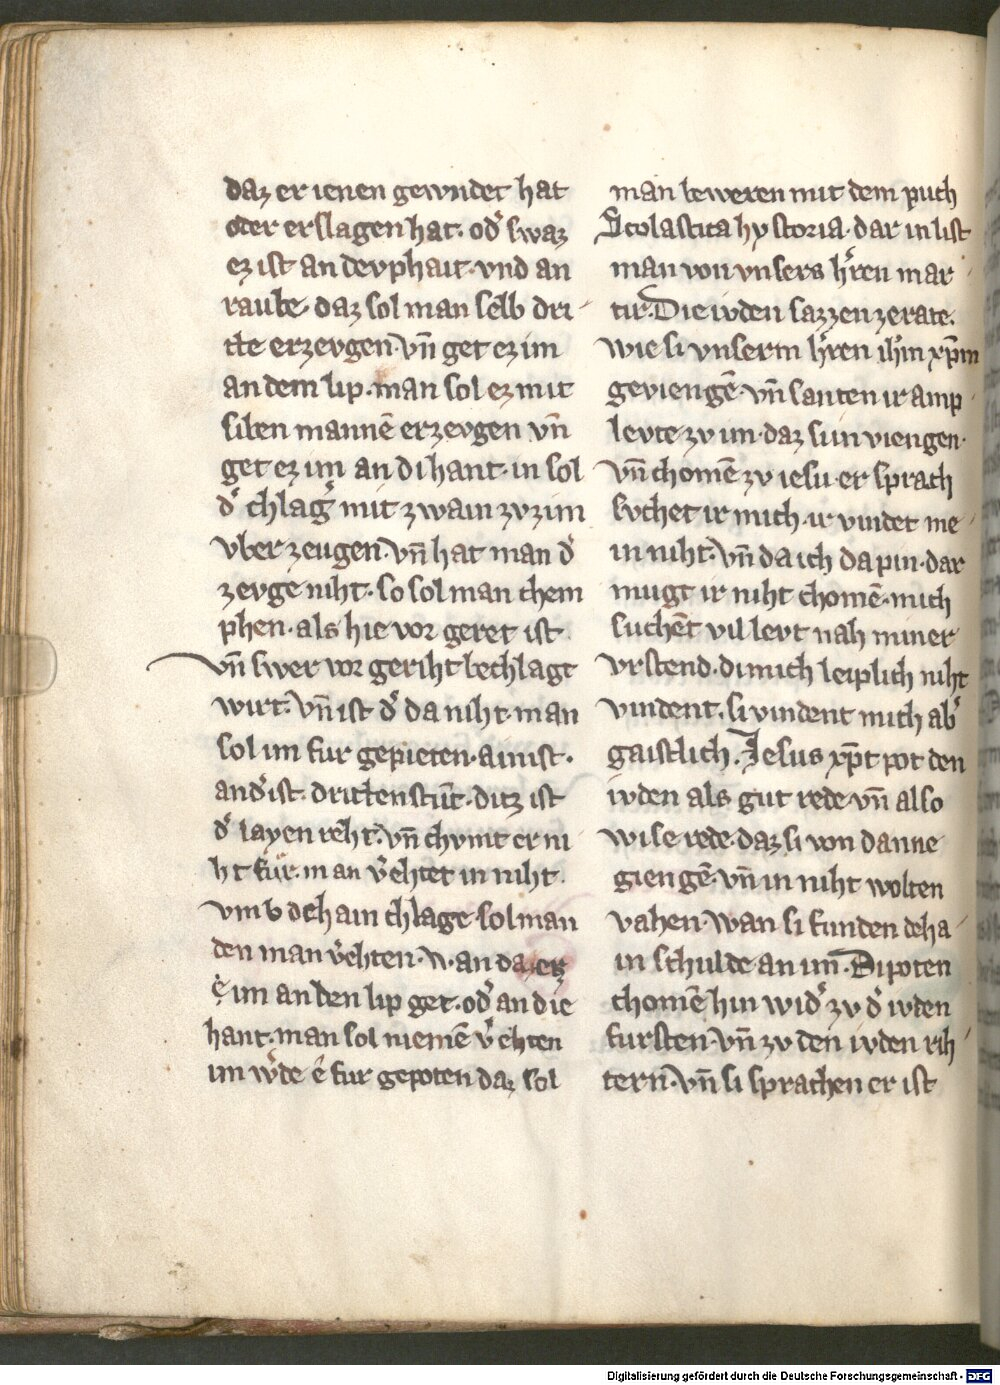 daz er ienen gewndet hat
oder erslagen hat. od͛ swaz
ez ist an devphait. vnd an
raube. daz sol man selb dri
tte erzevgen. vn̄ get ez im
an dem lip. man sol ez mit
siben mannē erzevgen vn̄
get ez im an di hant. in sol
d͛ chlag͛ mit zwain zvzim
vber zeugen. vn̄ hat man d͛
zevge niht. so sol man chem
phen. als hie vor geret ist.
vn̄ swer vor geriht bechlagt
wirt. vn̄ ist d͛ da niht. man
sol im fur gepieten. ainist.
and͛ist. drittenstūt. ditz ist
d͛ layen reht. vn̄ chvmt er ni
ht fur. man v͛ehtet in niht.
vmb dehain chlage. sol man
den man v͛ehten. wan daz ez
im an den lip get. od͛ an die
hant. man sol niemē v͛ehten
im w͛de ê fur gepoten daz sol
man beweren mit dem puch
Scolastica hystoria. dar in list
man von vnsers h͛ren mar
tir. Die ivden sazzen ze rate.
wie si vnserm h͛ren ih̄m xp̄m
geviengē. vn̄ santen ir amp
levte zv im. daz si in viengen.
vn̄ chomē zv iesu. er sprach
svchet ir mich. ir vindet me
in niht. vn̄ da ich da pin. dar
mugt ir niht chomē. mich
suchēt vil levt nah miner
vrstend. di mich leiplich niht
vindent. si vindent mich ab͛
gaistlich. Jesus xp̄t pot den
ivden als gut rede vn̄ also
wise rede. daz si von danne
giengē. vn̄ in niht wolten
vahen. wan si funden deha
in schulde an im. Di poten
chomē hin wid͛ zv d͛ ivden
fursten. vn̄ zv den ivden rih
tern. vn̄ si sprachen er ist
Digitalisierung gefördert durch die Deutsche Forschungsgemeinschaft - DFG